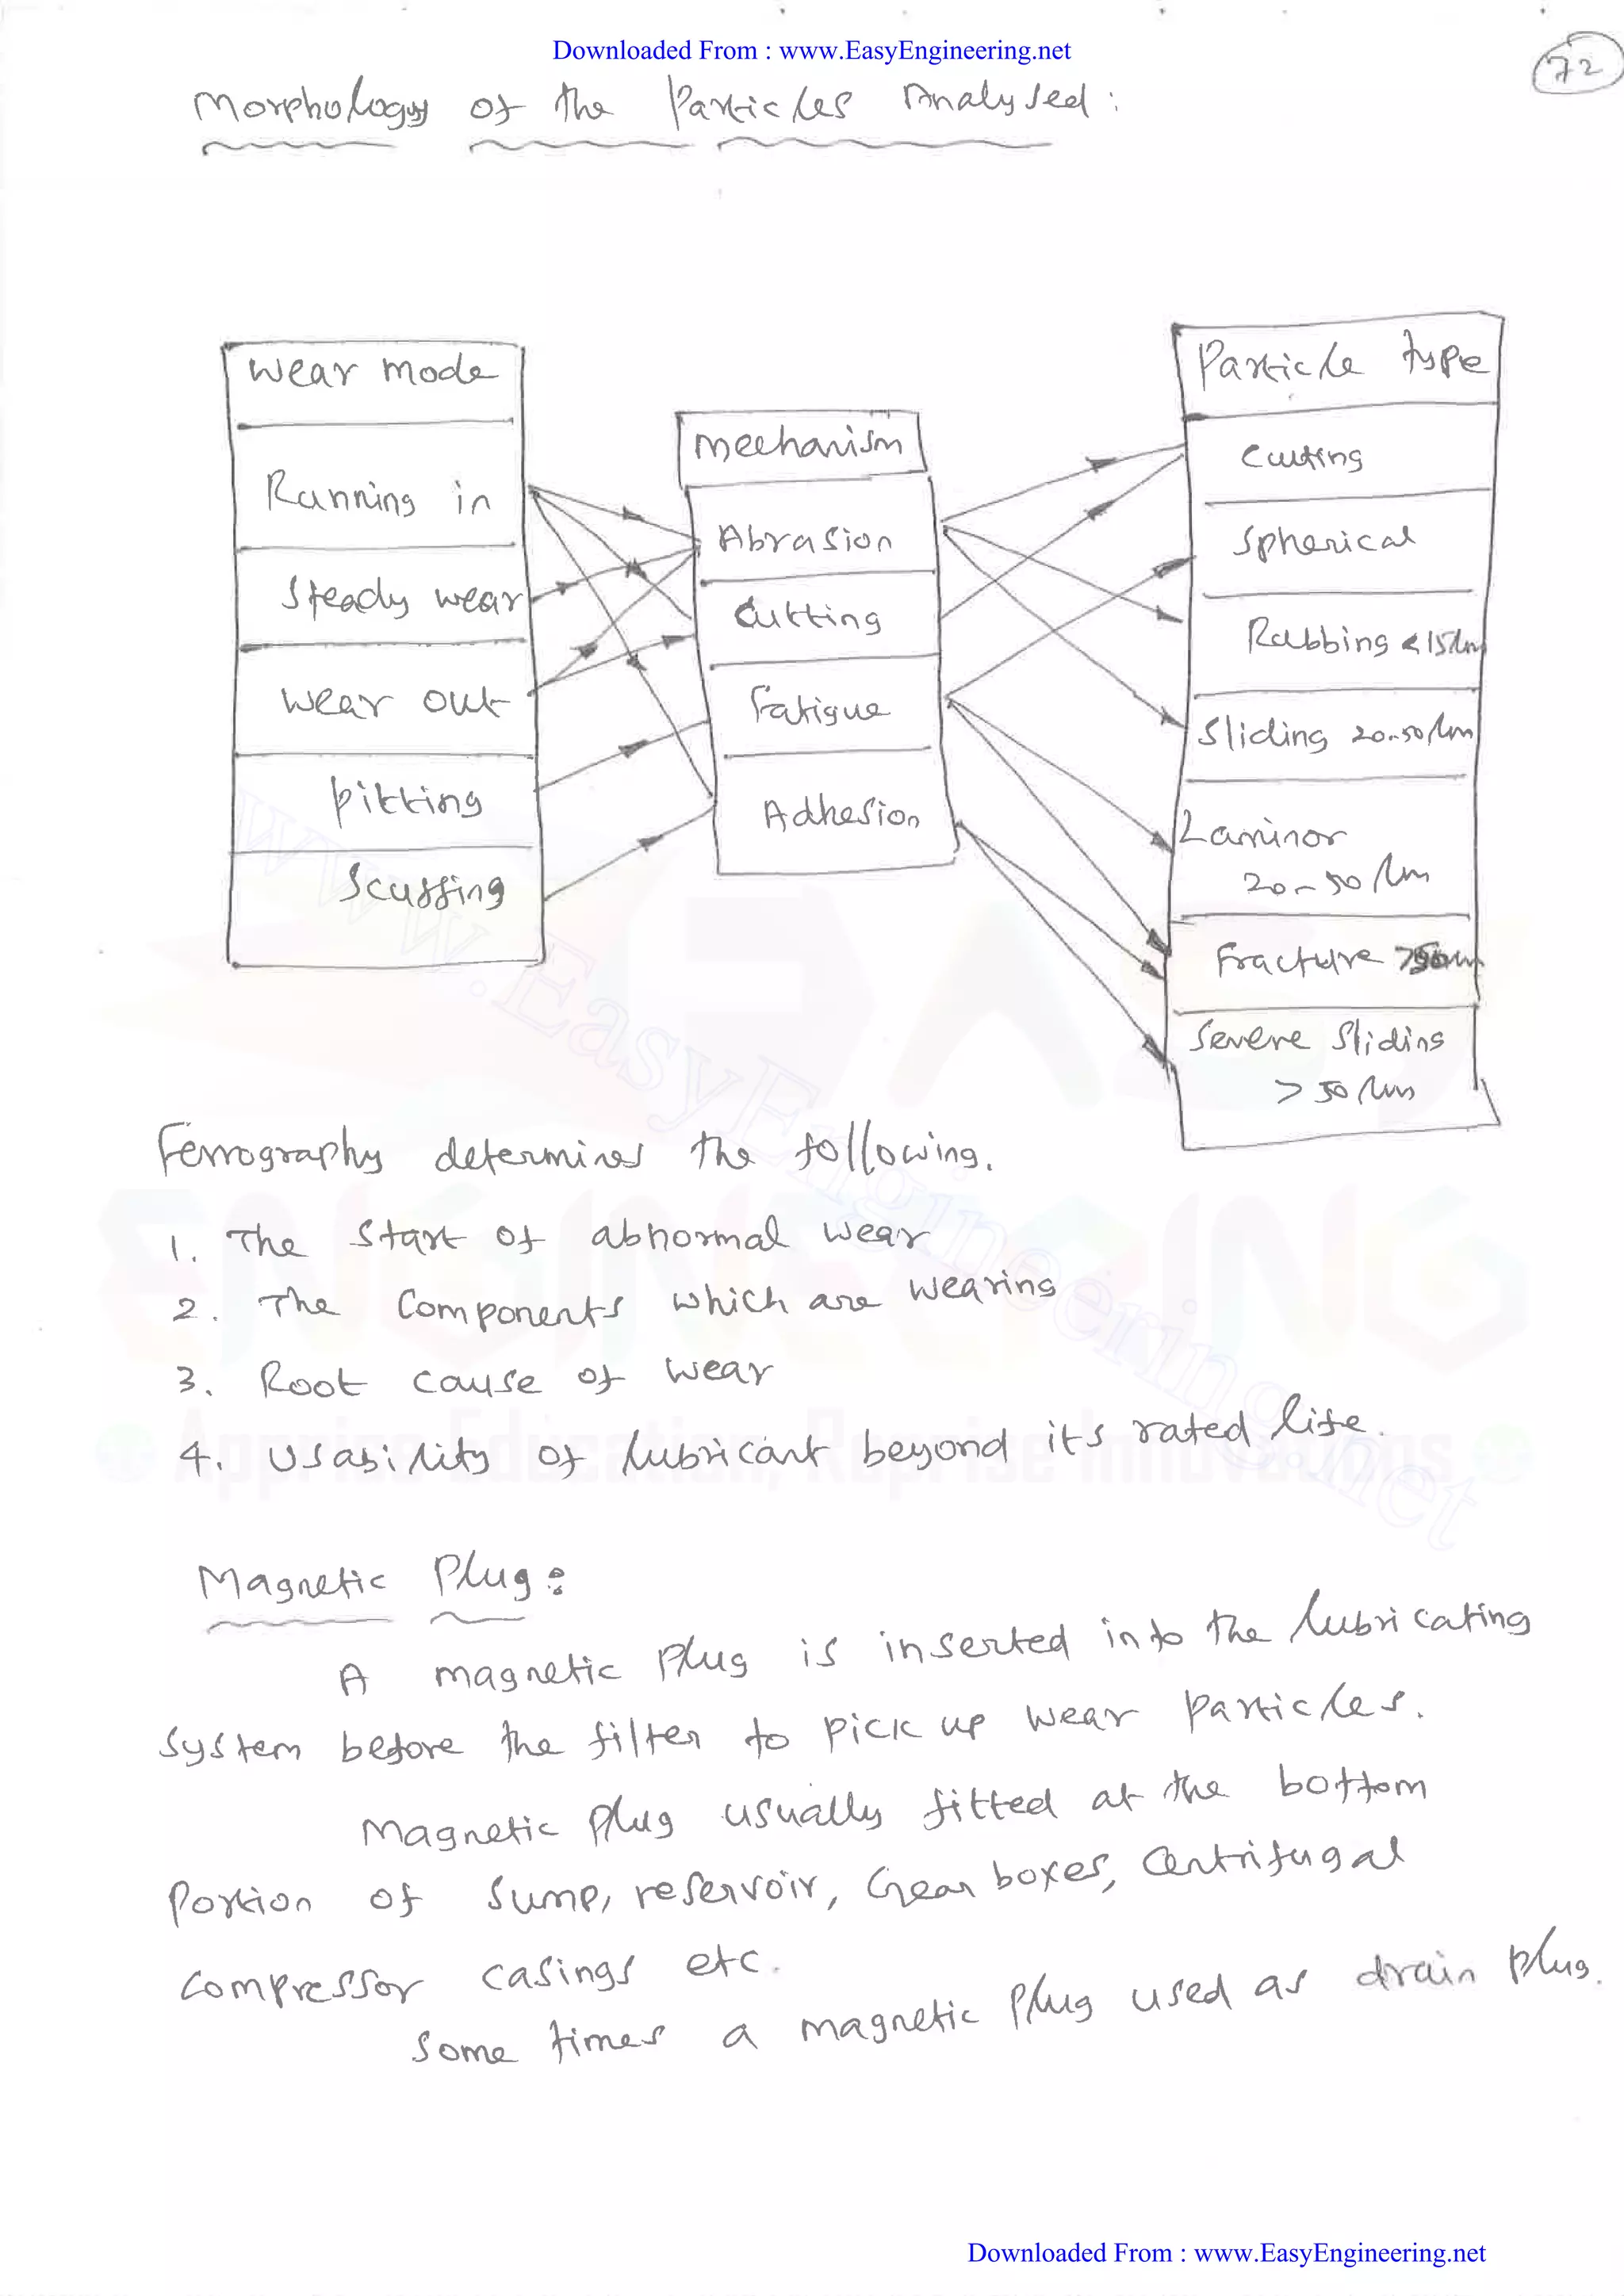 Downloaded From : www.EasyEngineering.net
72
Morphology of the Particles Analysed :
Wear mode
Running in
Steady wear
Wear out
Pitting
Scuffing
Mechanism
Abrasion
Cutting
Fatigue
Adhesion
Particle type
Cutting
Spherical
Rubbing <15μm
Sliding 20-50μm
Laminar
20-50 μm
Fracture >50μm
Severe Sliding
> 50 μm
Ferrography determines the following.
1. The Start of abnormal wear
2. The Components which are wearing
3. Root cause of wear
4. Usability of lubricant beyond its rated life.
Magnetic Plug :
A magnetic plug is inserted into the lubricating
System before the filter to pick up wear particles.
Magnetic plug usually fitted at the bottom
Portion of Sump, reservoir, Gear boxes, Centrifugal
Compressor casings etc.
Some times a magnetic plug used as drain plug.
www.EasyEngineering.net
EASY
ENGINEERING
Apprise Education, Reprise Innovations
Downloaded From : www.EasyEngineering.net